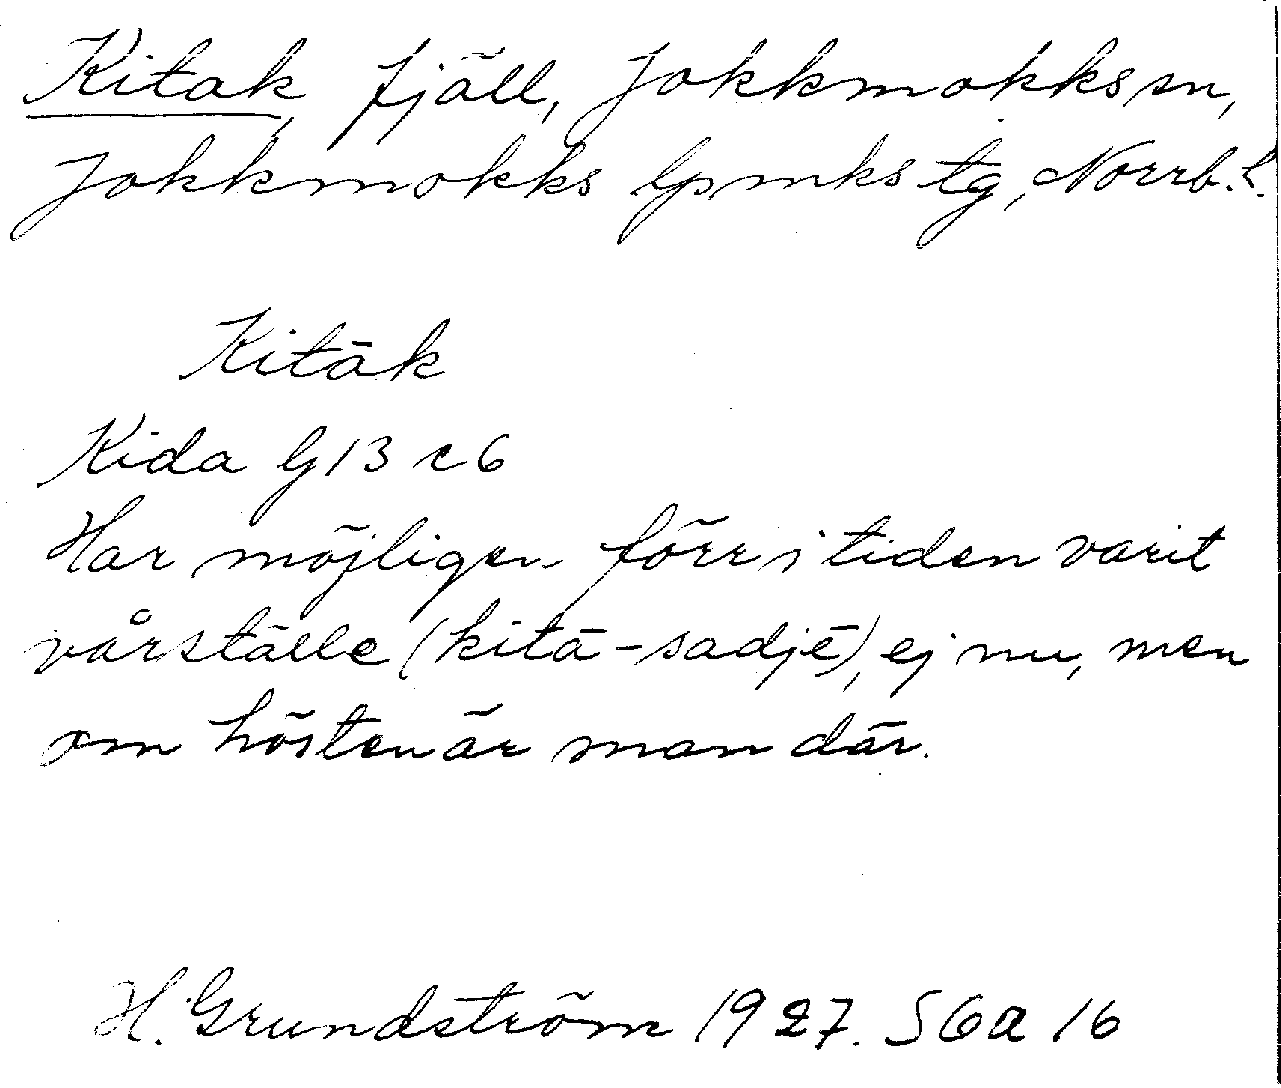 Kitak, fjäll, Jokkmokks sn,
Jokkmokks lpmks tg, Norrb. l.
Kitāk
Kida G 13 c 6
Har möjligen förr i tiden varit
vårställe (kitā-sadjē), ej nu, men
om hösten är man där.
H. Grundström 1927. S6a 16